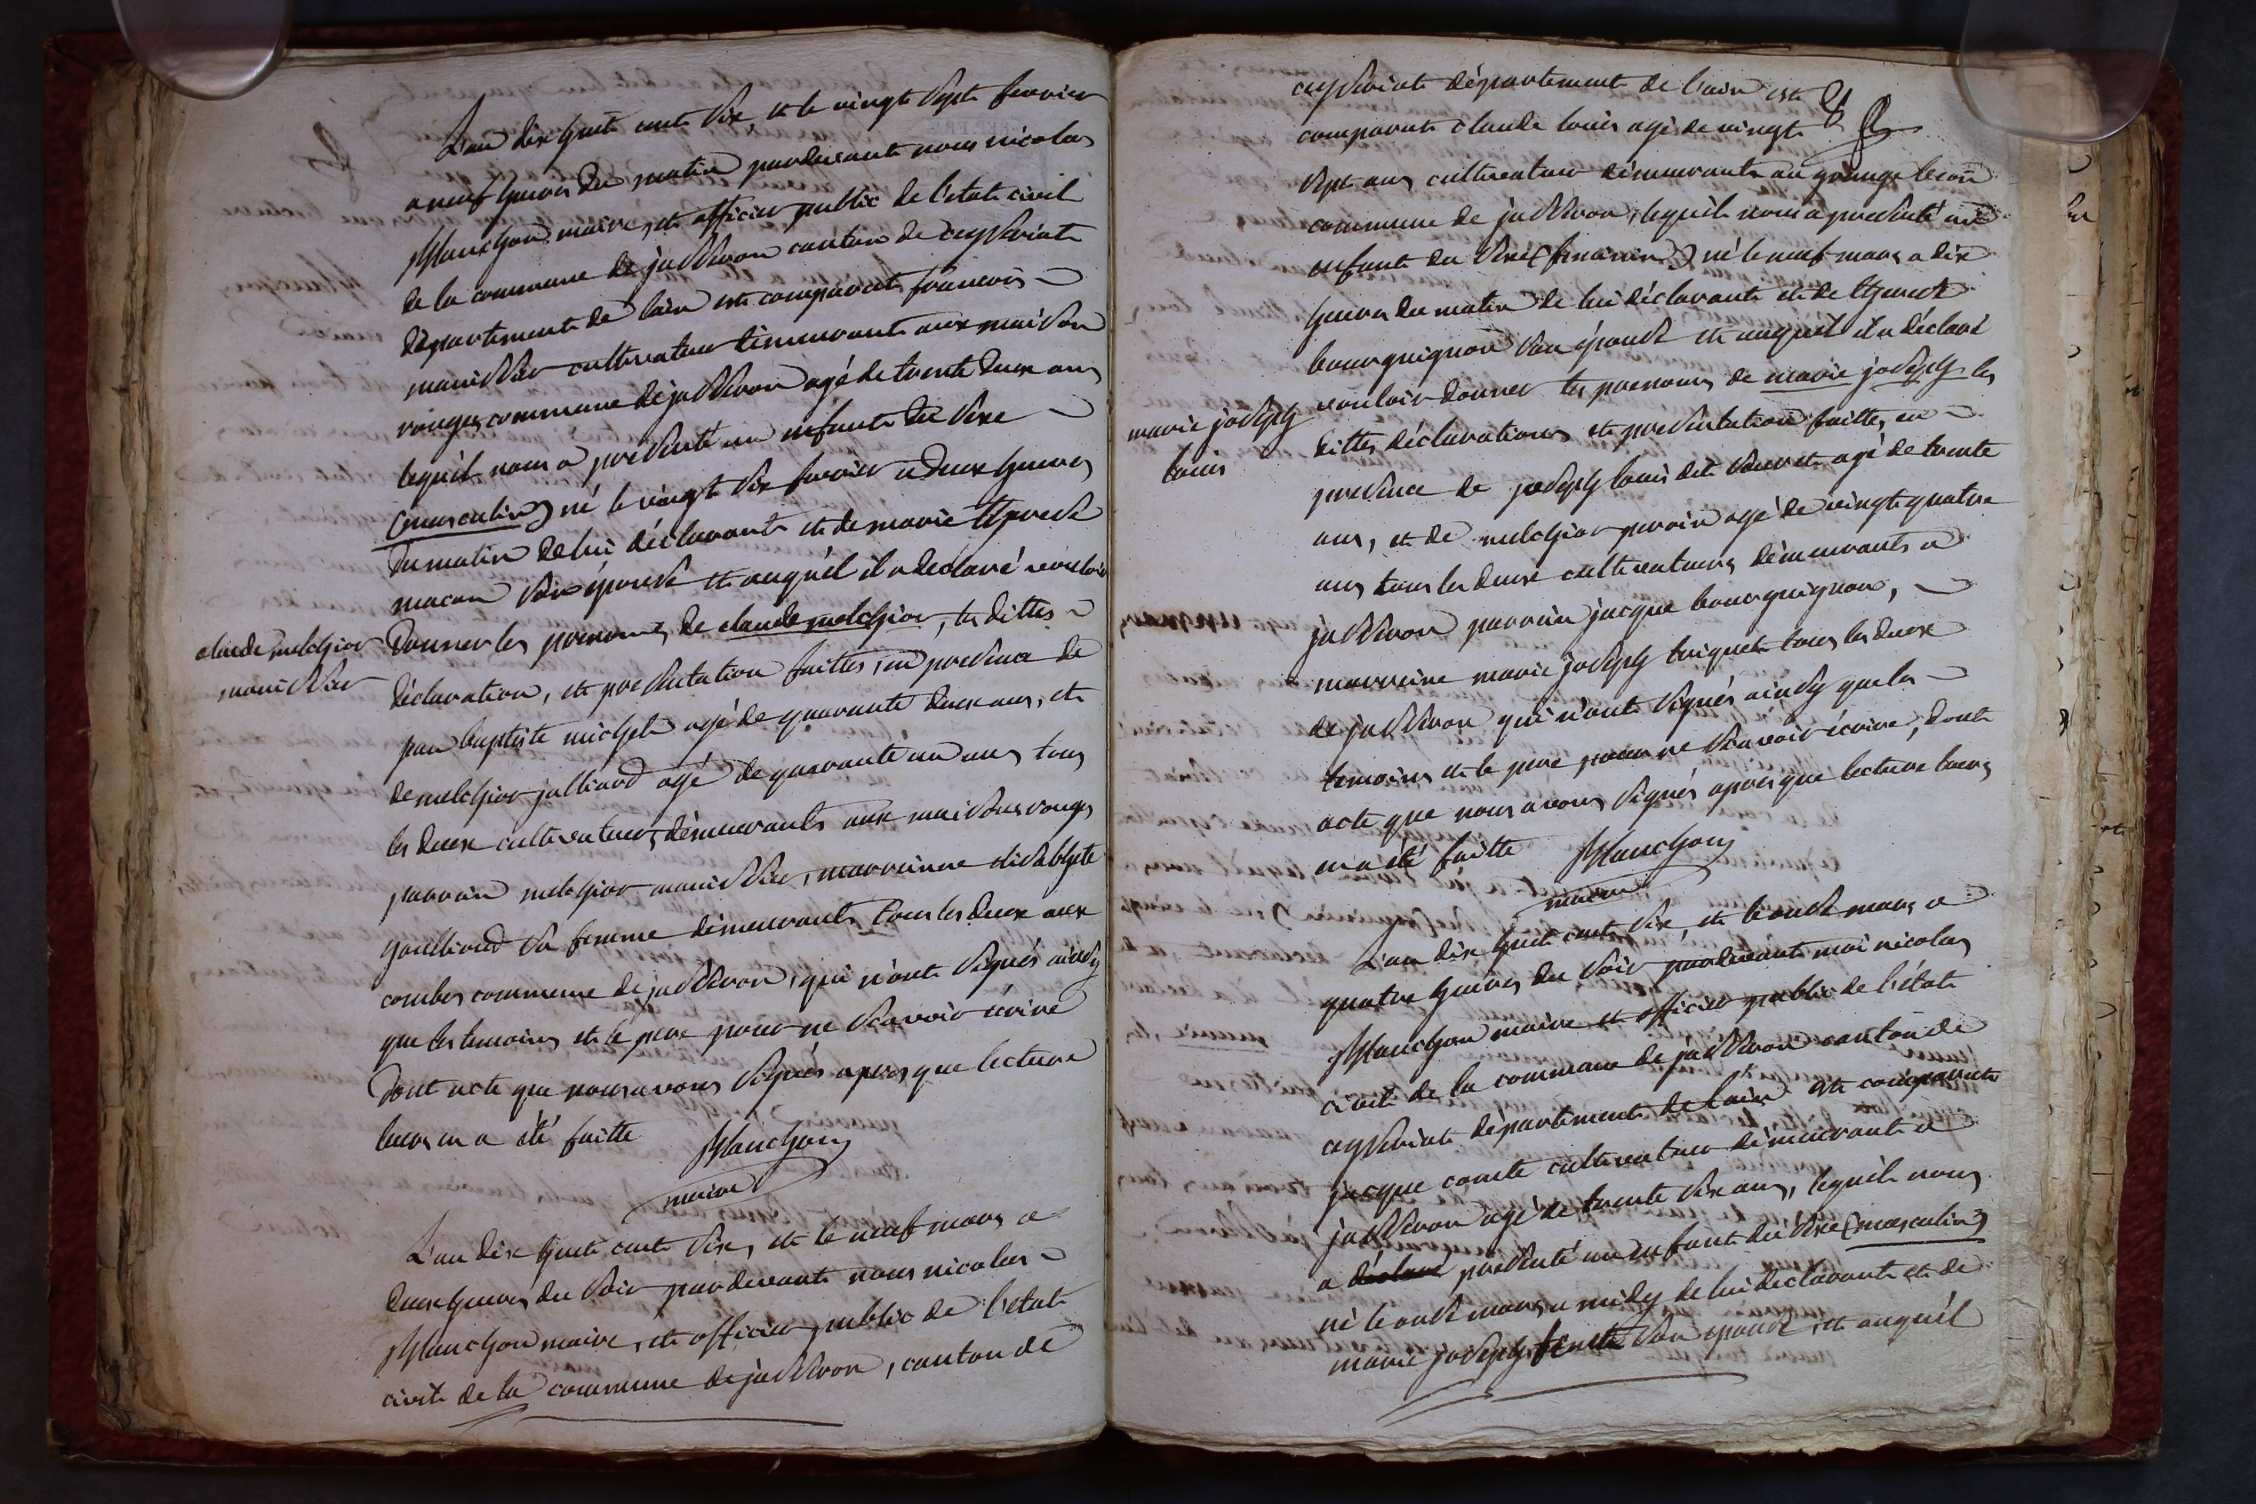 L'an dix huit cent six, et le vingt sept fevrier
a neuf heures du matin pardevant nous nicolas
Planchon maire, et officier public de l'etat civil
de la commune de jasseron canton de ceyseriat
département de lain est comparut francois
manissier cultivateur demeurant aux maison
rouges commune de jasseron agé de trente deux ans
lequél nous a presenté un enfant du sexe
(masculin) né le vingt six fevrier a deux heures
du matin de lui déclarant et de marie therese
macon son épouse et auquél il a declaré vouloir
donner les prenoms de claude melchior, les dittes
claude melchior
manissier
déclaration, et presentation faittes, en presence de
jean baptiste michel agé de quarante deux ans, et
de melchior julliard agé de quarante un ans tous
les deux cultivateurs, demeurants aux maisons rouges
parrain melchior manissier, marrainne elisabhete
goulliard sa femme demeurants tous les deux aux
combes commune de jasseron, qui n'ont signés ainsy
que les temoins et le pere pour ne sçavoir écrire
dont acte que nous avons signés apres que lecture
leurs en a été faitte Planchon
maire
L'an dix huit cent six, et le neuf mars a
deux heures du soir pardevant nous nicolas
Planchon maire, et officier public de l'etat
civil de la commune de jasseron, canton de
ceyseriat département de l'ain est
comparut claude louis agé de vingt
sept ans cultivateur démeurant au grange
commune de jasseron, lequél nous a presenté un
enfant du sexe (feminin) né le neuf mars a dix
heures du matin de lui déclarant et de therese
bourguignon son épouse et auquél il a déclaré
vouloir donner les prenoms de marie joseph les
marie joseph
louis
dittes déclarations et presentation faittes, en
presence de joseph louis dit agé de trente
ans, et de melchior perain agé de vingt quatre
ans tous les deux cultivateurs démeurants a
jasseron parrain jacque bourguignon,
marreine marie joseph briquet tous les deux
de jasseron qui n'ont signés ainsy que les
temoins et le pere pour ne sçavoir écrire, dont
acte que nous avons signés apres que lecture leurs
en a été faitte Planchon
maire
L'an dix huit cent six, et le onze mars a
quatre heures du soir pardevant moi nicolas
Planchon maire et officier public de l'état
civil de la commune de jasseron canton de
ceyseriat département de l'ain est comparut
jacque comte cultivateur démeurant a
jasseron agé de trente six ans, lequél nous
a declaré presenté un enfant du sexe (masculin)
né le onze mars a midy de lui declarant et de
marie joseph son epouse et auquél